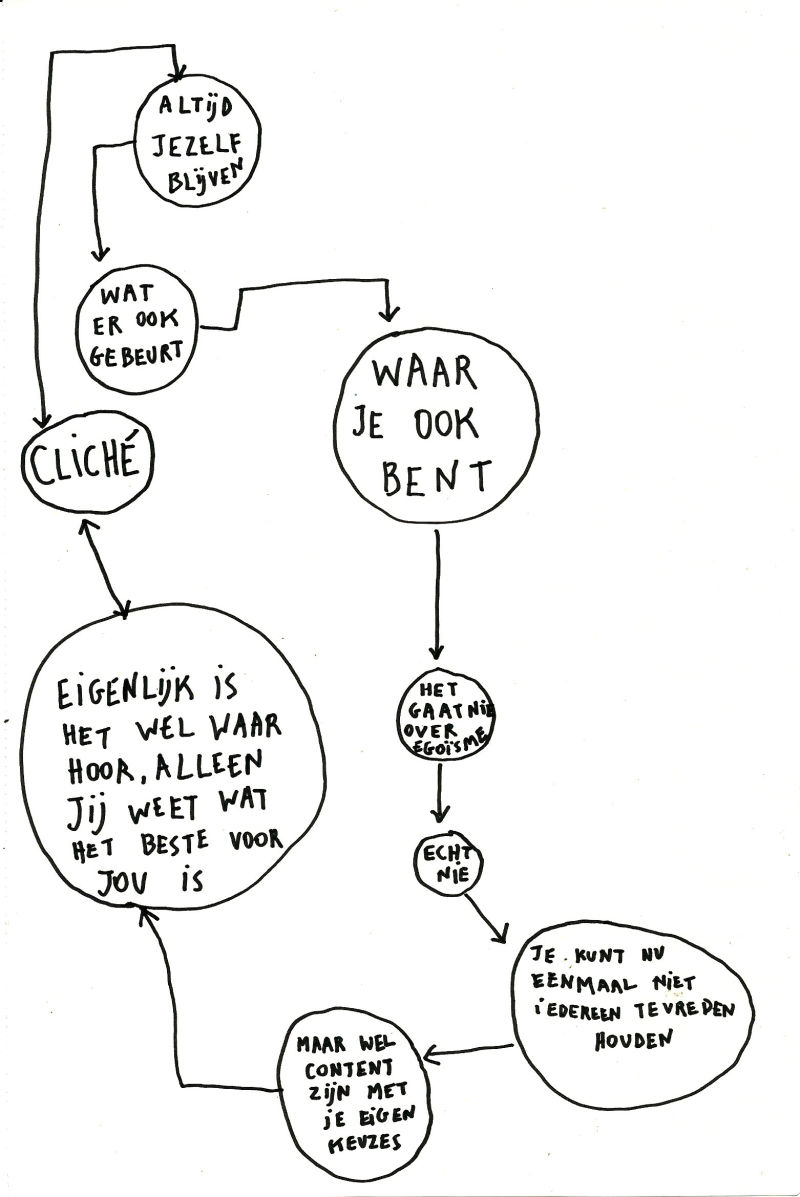 ALTIJD
JEZELF
BLIJVEN
WAT
ER OOK
GEBEURT
WAAR
JE OOK
BENT
HET
GAAT NIE
OVER
EGOÏSME
ECHT
NIE
JE KUNT NU
EENMAAL NIET
IEDEREEN TEVREDEN
HOUDEN
MAAR WEL
CONTENT
ZIJN MET
JE EIGEN
KEUZES
EIGENLIJK IS
HET WEL WAAR
HOOR, ALLEEN
JIJ WEET WAT
HET BESTE VOOR
JOU IS
CLICHÉ